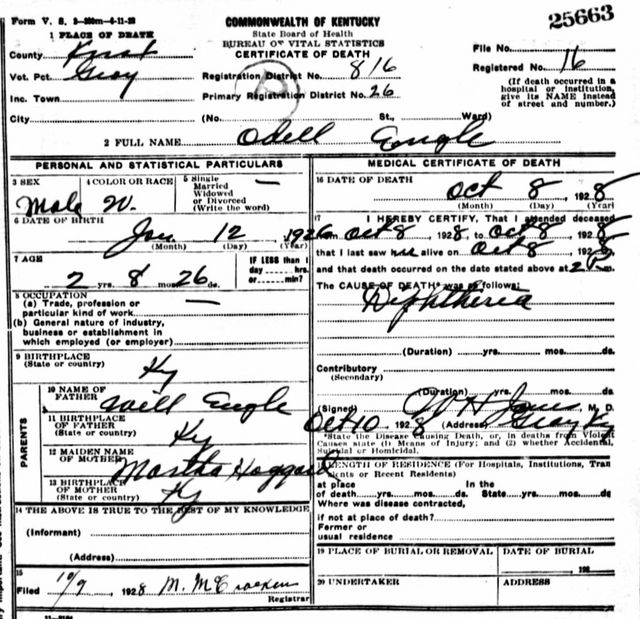 Form V. S. 3-300m-6-11-28
COMMONWEALTH OF KENTUCKY
25663
1 PLACE OF DEATH
State Board of Health
BUREAU OF VITAL STATISTICS
CERTIFICATE OF DEATH
County Knox
File No.
Vot. Pct. Gray
Registration District No. 816
Registered No. 16
Inc. Town
Primary Registration District No. 26
(If death occurred in a hospital or institution, give its NAME instead of street and number.)
City
(No. St., Ward)
2 FULL NAME Odell Engle
PERSONAL AND STATISTICAL PARTICULARS
3 SEX Male
4 COLOR OR RACE W.
5 Single Married Widowed or Divorced (Write the word) —
6 DATE OF BIRTH Jan 12, 1926
(Month) (Day) (Year)
7 AGE
IF LESS than 1 day ... hrs. or ... min?
2 yrs. 8 mos. 26 ds.
8 OCCUPATION
(a) Trade, profession or particular kind of work
(b) General nature of industry, business or establishment in which employed (or employer)
9 BIRTHPLACE
(State or country) Ky
PARENTS
10 NAME OF FATHER Will Engle
11 BIRTHPLACE OF FATHER
(State or country) Ky
12 MAIDEN NAME OF MOTHER Martha Hoggard
13 BIRTHPLACE OF MOTHER
(State or country) Ky
14 THE ABOVE IS TRUE TO THE BEST OF MY KNOWLEDGE
(Informant)
(Address)
15
Filed 10/9, 1928 M. McCracken
Registrar
MEDICAL CERTIFICATE OF DEATH
16 DATE OF DEATH
Oct 8, 1928
(Month) (Day) (Year)
17 I HEREBY CERTIFY, That I attended deceased
from Oct 8, 1928, to Oct 8, 1928
that I last saw alive on Oct 8, 1928
and that death occurred on the date stated above at 2 P m.
The CAUSE OF DEATH* was as follows:
Diphtheria
(Duration) yrs. mos. ds.
Contributory
(Secondary)
(Duration) yrs. mos. ds.
(Signed) W H Jones M. D.
Oct 10, 1928 (Address) Gray Ky
*State the Disease Causing Death, or, in deaths from Violent Causes state (1) Means of Injury; and (2) whether Accidental, Suicidal or Homicidal.
LENGTH OF RESIDENCE (For Hospitals, Institutions, Transients or Recent Residents)
at place of death yrs. mos. ds. In the State yrs. mos. ds.
Where was disease contracted,
if not at place of death?
Former or
usual residence
19 PLACE OF BURIAL OR REMOVAL
DATE OF BURIAL
192
20 UNDERTAKER
ADDRESS